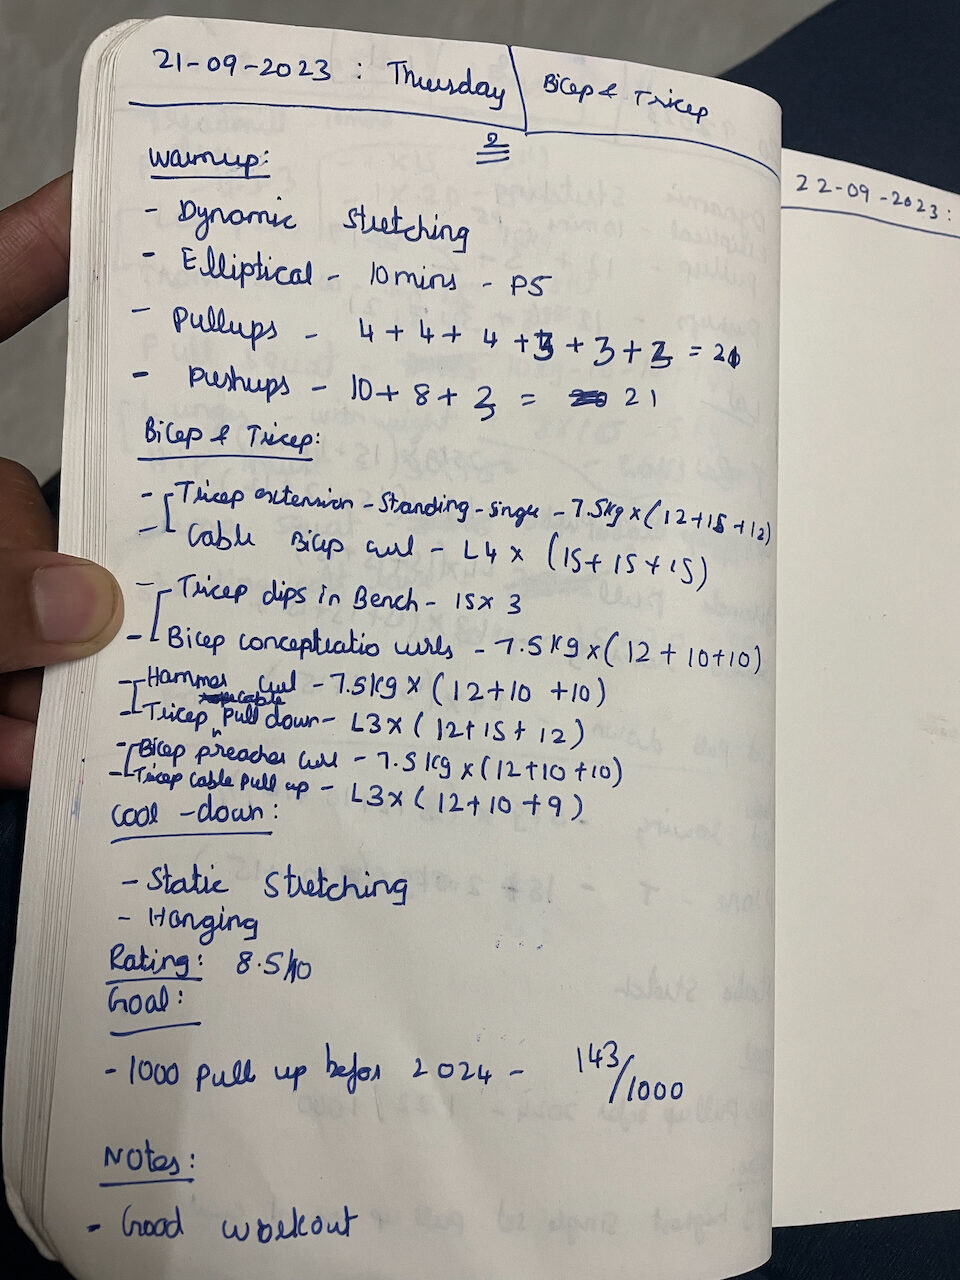 21-09-2023 : Thursday
Bicep & Tricep
2
Warmup:
- Dynamic stretching
- Elliptical - 10 mins - P5
- Pullups - 4 + 4 + 4 + 3 + 3 + 3 = 21
- Pushups - 10 + 8 + 3 = 21
Bicep & Tricep:
- Tricep extension - Standing - single - 7.5kg x (12+15+12)
- Cable Bicep curl - L4 x (15+15+15)
- Tricep dips in Bench - 15 x 3
- Bicep conceptratio curls - 7.5kg x (12 + 10+10)
- Hammer curl - 7.5kg x (12+10 +10)
cable
- Tricep pull down - L3 x (12+15+12)
- Bicep preacher curl - 7.5kg x (12+10+10)
- Tricep cable pull up - L3x (12+10+9)
Cool-down:
- Static stretching
- Hanging
Rating: 8.5/10
Goal:
- 1000 pull up before 2024 - 143/1000
Notes:
- Good workout
22-09-2023 :